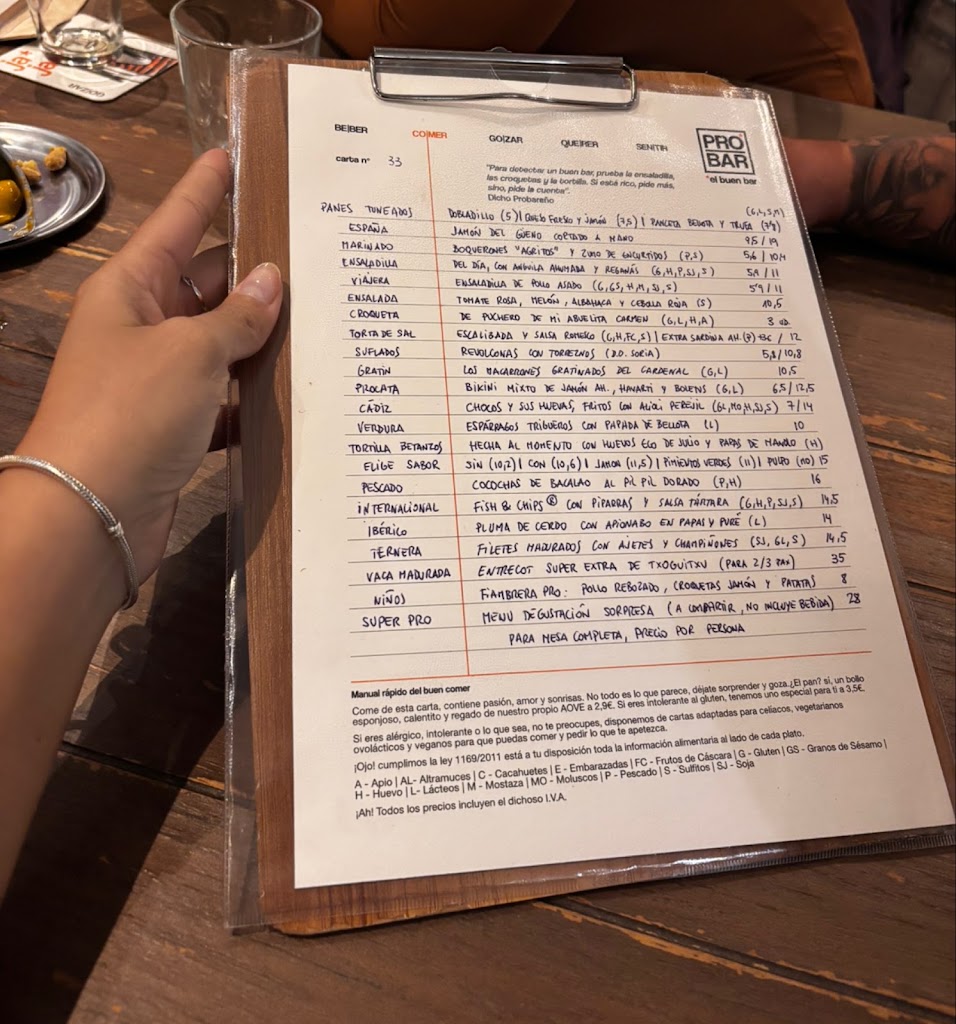 BE|BER CO|MER GO|ZAR QUE|RER SEN|TIR
PRO
BAR
"el buen bar
carta nº 33
"Para detectar un buen bar, prueba la ensaladilla,
las croquetas y la tortilla. Si está rico, pide más,
sino, pide la cuenta".
Dicho Probareño
PANES TUNEADOS DOBLADILLO (5) | QUESO FRESKO Y JAMÓN (7,5) | PANCETA BELLOTA Y TRUFA (G,L,S,M)
ESPAÑA JAMÓN DEL GÜENO CORTADO A MANO 9,5 / 19
MARINADO BOQUERONES "AGRITOS" Y ZUMO DE ENCURTIDOS (P,S) 5,6 / 10,4
ENSALADILLA DEL DÍA, CON ANGUILA AHUMADA Y REGAÑÁS (G,H,P,SJ,S) 5,9 / 11
VIAJERA ENSALADILLA DE POLLO ASADO (G,GS,H,M,SJ,S) 5,9 / 11
ENSALADA TOMATE ROSA, MELÓN, ALBAHACA Y CEBOLLA ROJA (S) 10,5
CROQUETA DE PUCHERO DE MI ABUELITA CARMEN (G,L,H,A) 3 ud.
TORTA DE SAL ESCALIBADA Y SALSA ROMESCO (G,H,FC,S) | EXTRA SARDINA AH. (P) / 12
SUFLADOS REVOLCONAS CON TORREZNOS (D.O. SORIA) 5,8 / 10,8
GRATIN LOS MACARRONES GRATINADOS DEL CARDENAL (G,L) 10,5
PIROLATA BIKINI MIXTO DE JAMÓN AH., HAVARTI Y BOLETUS (G,L) 6,5 / 12,5
CÁDIZ CHOCOS Y SUS HUEVAS, FRITOS CON ALIOLI PEREJIL (GL,MO,H,SJ,S) 7/14
VERDURA ESPÁRRAGOS TRIGUEROS CON PAPADA DE BELLOTA (L) 10
TORTILLA BETANZOS HECHA AL MOMENTO CON HUEVOS ECO DE JULIO Y PAPAS DE MANOLO (H)
ELIGE SABOR SIN (10,2) | CON (10,6) | JAMON (11,5) | PIMIENTOS VERDES (11) | PULPO (MO) 15
PESCADO COCOCHAS DE BACALAO AL PIL PIL DORADO (P,H) 16
INTERNACIONAL FISH & CHIPS® CON PIPARRAS Y SALSA TÁRTARA (G,H,P,SJ,S) 14,5
IBÉRICO PLUMA DE CERDO CON APIONABO EN PAPAS Y PURÉ (L) 14
TERNERA FILETES MADURADOS CON AJETES Y CHAMPIÑONES (SJ, GL, S) 14,5
VACA MADURADA ENTRECOT SUPER EXTRA DE TXOGUITXU (PARA 2/3 PAX) 35
NIÑOS FIAMBRERA PRO: POLLO REBOZADO, CROQUETAS JAMÓN Y PATATAS 8
SUPER PRO MENÚ DEGUSTACIÓN SORPRESA (A COMPARTIR, NO INCLUYE BEBIDA) 28
PARA MESA COMPLETA, PRECIO POR PERSONA
Manual rápido del buen comer
Come de esta carta, contiene pasión, amor y sonrisas. No todo es lo que parece, déjate sorprender y goza.¿El pan? sí, un bollo
esponjoso, calentito y regado de nuestro propio AOVE a 2,9€. Si eres intolerante al gluten, tenemos uno especial para ti a 3,5€.
Si eres alérgico, intolerante o lo que sea, no te preocupes, disponemos de cartas adaptadas para celiacos, vegetarianos
ovolácticos y veganos para que puedas comer y pedir lo que te apetezca.
¡Ojo! cumplimos la ley 1169/2011 está a tu disposición toda la información alimentaria al lado de cada plato.
A - Apio | AL- Altramuces | C - Cacahuetes | E - Embarazadas | FC - Frutos de Cáscara | G - Gluten | GS - Granos de Sésamo |
H - Huevo | L- Lácteos | M - Mostaza | MO - Moluscos | P - Pescado | S - Sulfitos | SJ - Soja
¡Ah! Todos los precios incluyen el dichoso I.V.A.
GO|ZAR